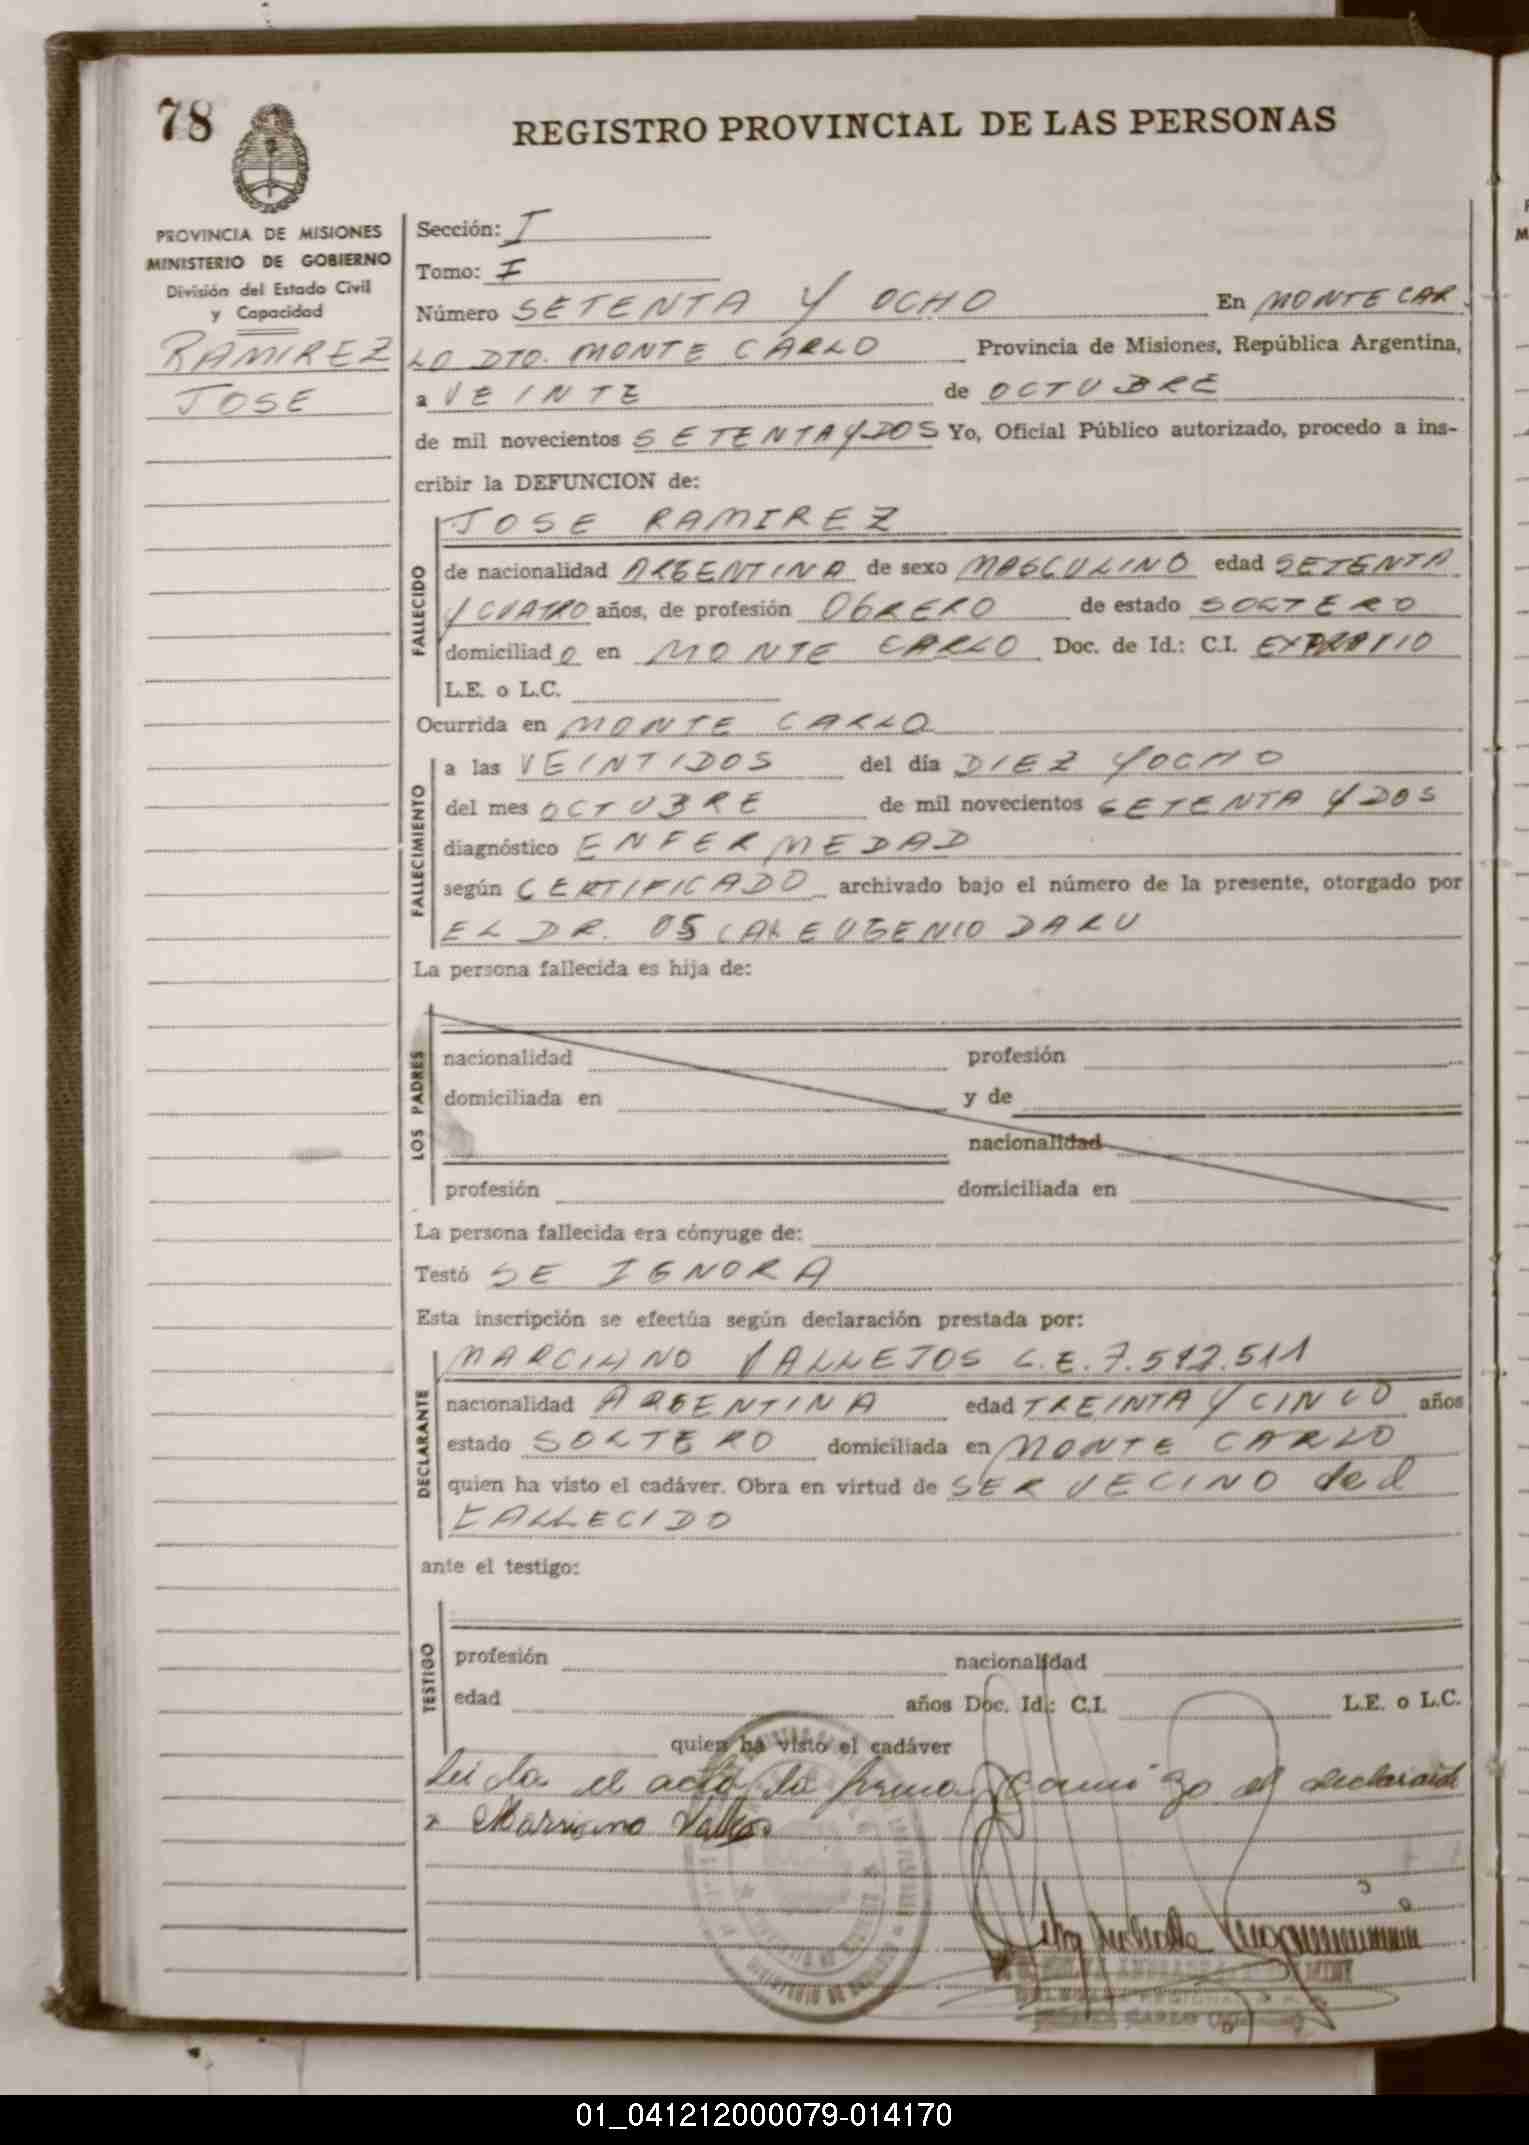 78
REGISTRO PROVINCIAL DE LAS PERSONAS
PROVINCIA DE MISIONES
MINISTERIO DE GOBIERNO
División del Estado Civil
y Capacidad
RAMIREZ
JOSE
Sección: I
Tomo: I
Número SETENTA Y OCHO En MONTE CAR
LO DTO. MONTE CARLO Provincia de Misiones, República Argentina,
a VEINTE de OCTUBRE
de mil novecientos SETENTA Y DOS Yo, Oficial Público autorizado, procedo a ins-
cribir la DEFUNCION de:
FALLECIDO
JOSE RAMIREZ
de nacionalidad ARGENTINA de sexo MASCULINO edad SETENTA
Y CUATRO años, de profesión OBRERO de estado SOLTERO
domiciliado en MONTE CARLO Doc. de Id.: C.I. EXTRAVIO
L.E. o L.C.
Ocurrida en MONTE CARLO
FALLECIMIENTO
a las VEINTIDOS del día DIEZ Y OCHO
del mes OCTUBRE de mil novecientos SETENTA Y DOS
diagnóstico ENFERMEDAD
según CERTIFICADO archivado bajo el número de la presente, otorgado por
EL DR. OSCAR EUGENIO DARU
La persona fallecida es hija de:
LOS PADRES
nacionalidad profesión
domiciliada en y de
nacionalidad
profesión domiciliada en
La persona fallecida era cónyuge de:
Testó SE IGNORA
Esta inscripción se efectúa según declaración prestada por:
DECLARANTE
MARCIANO VALLEJOS L.E. 7.512.511
nacionalidad ARGENTINA edad TREINTA Y CINCO años
estado SOLTERO domiciliada en MONTE CARLO
quien ha visto el cadáver. Obra en virtud de SER VECINO del
FALLECIDO
ante el testigo:
TESTIGO
profesión nacionalidad
edad años Doc. Id.: C.I. L.E. o L.C.
quien ha visto el cadáver
Leida el acta la firma conmigo el declarante
Marciano Vallejos
01_041212000079-014170